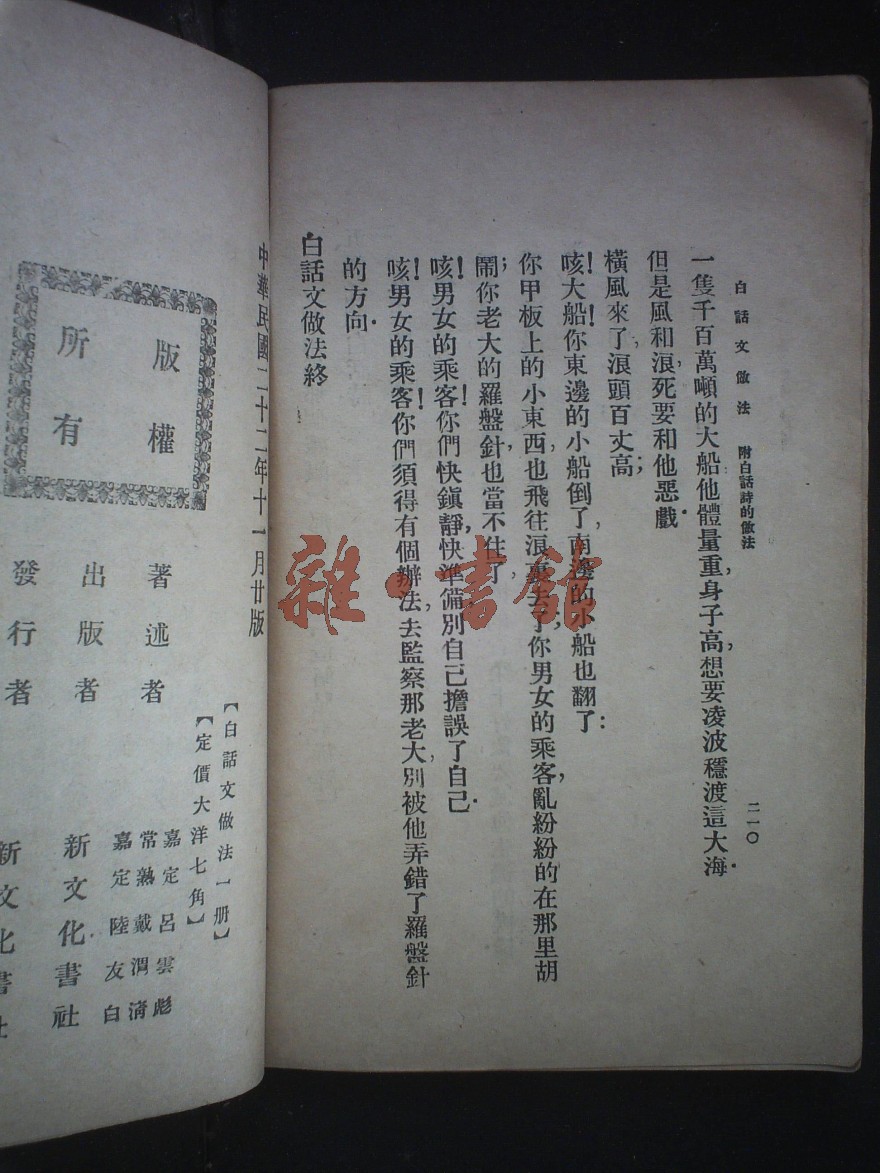 白話文做法　附白話詩的做法
二一〇
一隻千百萬噸的大船他體量重，身子高，想要凌波穩渡這大海．
但是風和浪，死要和他惡戲
橫風來了，浪頭百丈高；
咳！大船！你東邊的小船倒了，南邊的小船也翻了：
你甲板上的小東西也飛往浪裏去了；你男女的乘客，亂紛紛的在那里胡
鬧；你老大的羅盤針也當不住了，
咳！男女的乘客！你們快鎮靜，快準備，別自己擔誤了自己．
咳！男女的乘客！你們須得有個辦法，去監察那老大，別被他弄錯了羅盤針
的方向．
白話文做法終
中華民國二十二年十一月廿版
【白話文做法一册】
【定價大洋七角】
版權
所有
著述者
嘉定呂雲彪
常熟戴渭清
嘉定陸友白
出版者
新文化書社
發行者
新文化書社
雜書館